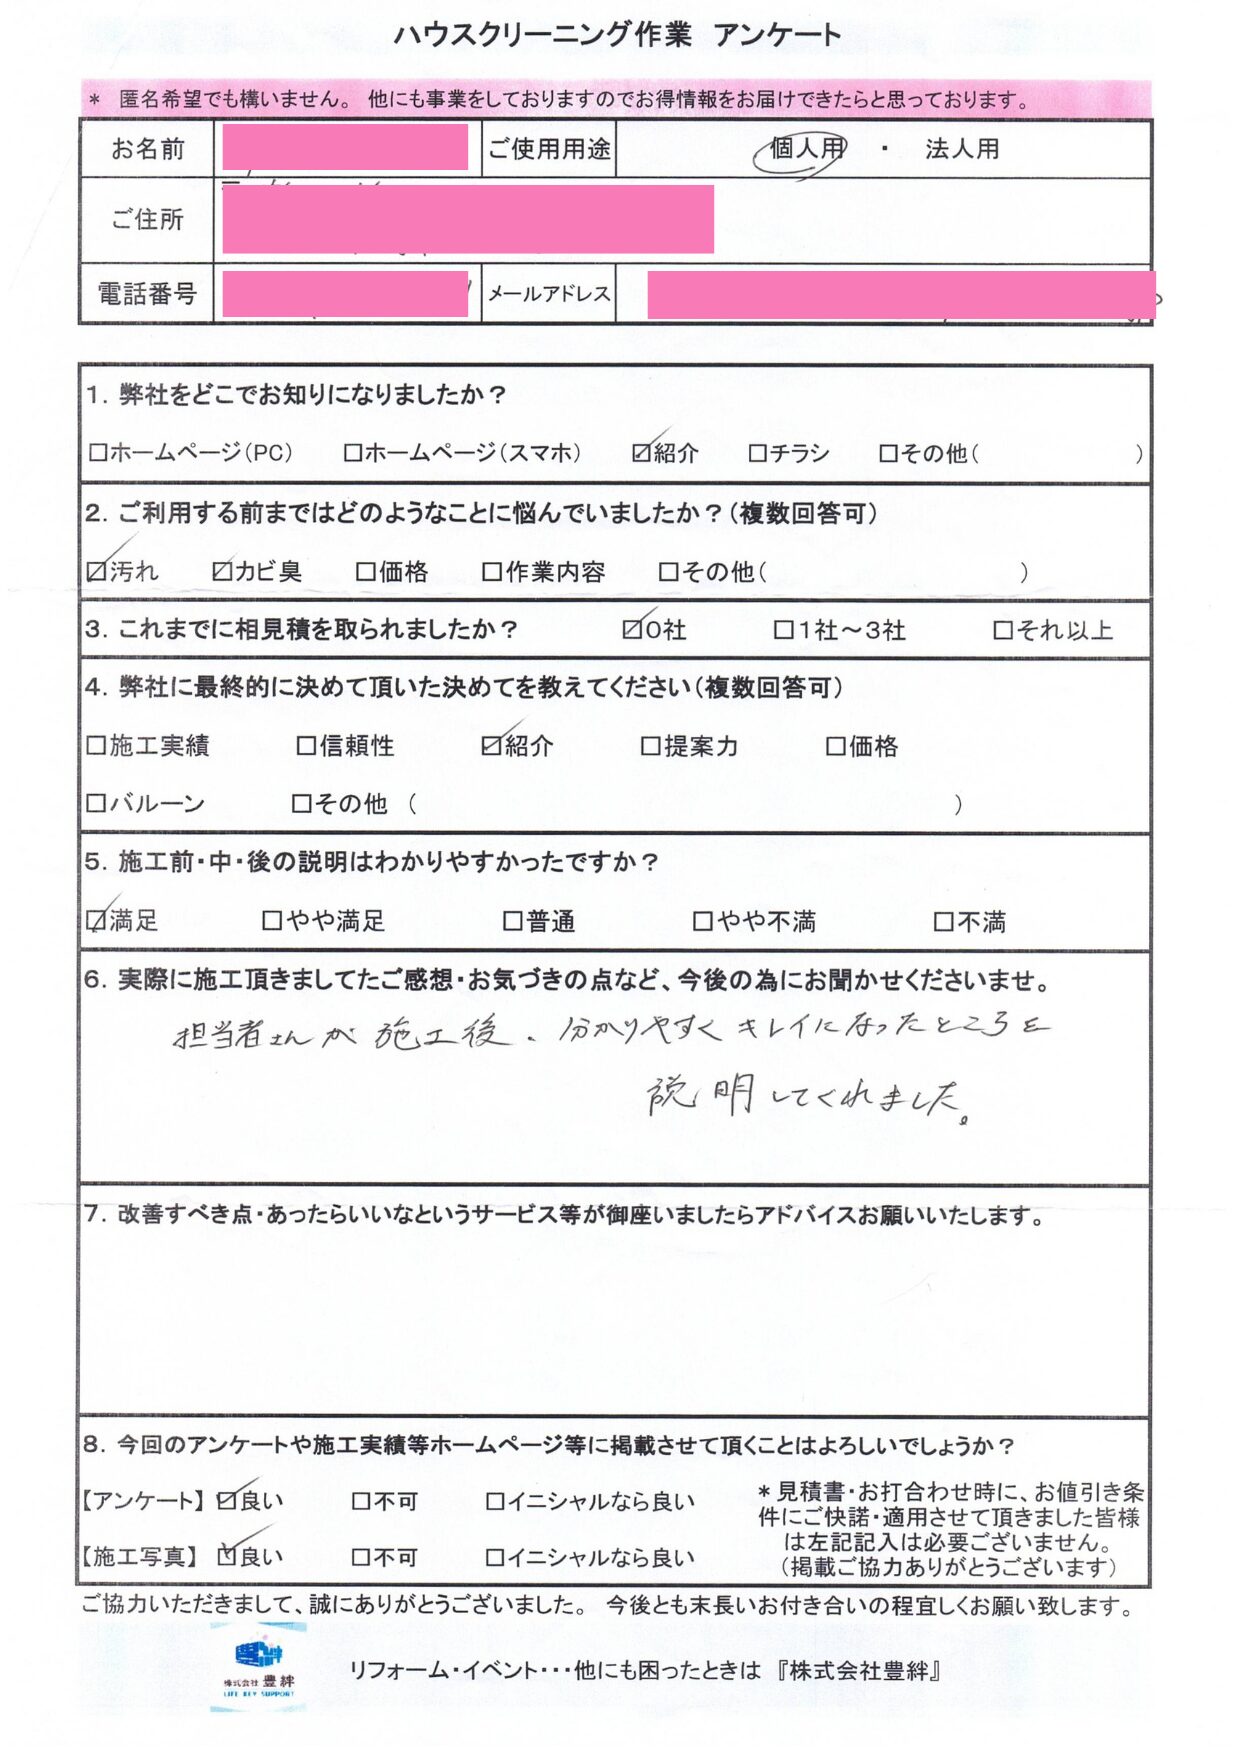 ハウスクリーニング作業 アンケート
* 匿名希望でも構いません。 他にも事業をしておりますのでお得情報をお届けできたらと思っております。
お名前 ご使用用途 個人用 ・ 法人用
ご住所
電話番号 メールアドレス
1. 弊社をどこでお知りになりましたか？
☐ホームページ(PC) ☐ホームページ(スマホ) ☑紹介 ☐チラシ ☐その他( )
2. ご利用する前まではどのようなことに悩んでいましたか？(複数回答可)
☑汚れ ☑カビ臭 ☐価格 ☐作業内容 ☐その他( )
3. これまでに相見積を取られましたか？ ☑0社 ☐1社～3社 ☐それ以上
4. 弊社に最終的に決めて頂いた決めてを教えてください(複数回答可)
☐施工実績 ☐信頼性 ☑紹介 ☐提案力 ☐価格
☐バルーン ☐その他 ( )
5. 施工前・中・後の説明はわかりやすかったですか？
☑満足 ☐やや満足 ☐普通 ☐やや不満 ☐不満
6. 実際に施工頂きましてたご感想・お気づきの点など、今後の為にお聞かせくださいませ。
担当者さんが施工後、分かりやすくキレイになったところを
説明してくれました。
7. 改善すべき点・あったらいいなというサービス等が御座いましたらアドバイスお願いいたします。
8. 今回のアンケートや施工実績等ホームページ等に掲載させて頂くことはよろしいでしょうか？
【アンケート】 ☑良い ☐不可 ☐イニシャルなら良い
【施工写真】 ☑良い ☐不可 ☐イニシャルなら良い
*見積書・お打合わせ時に、お値引き条
件にご快諾・適用させて頂きました皆様
は左記記入は必要ございません。
(掲載ご協力ありがとうございます)
ご協力いただきまして、誠にありがとうございました。 今後とも末長いお付き合いの程宜しくお願い致します。
豊絆
株式会社 豊絆
LIFE KEY SUPPORT
リフォーム・イベント・・・他にも困ったときは 『株式会社豊絆』